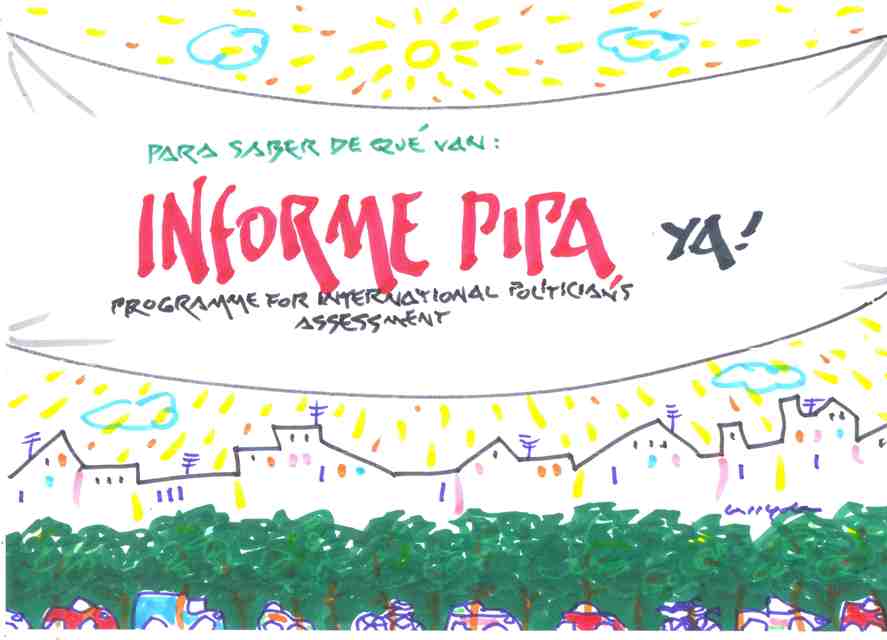 PARA SABER DE QUÉ VAN:
INFORME PIPA YA!
PROGRAMME FOR INTERNATIONAL POLÍTICIAN'S
ASSESSMENT